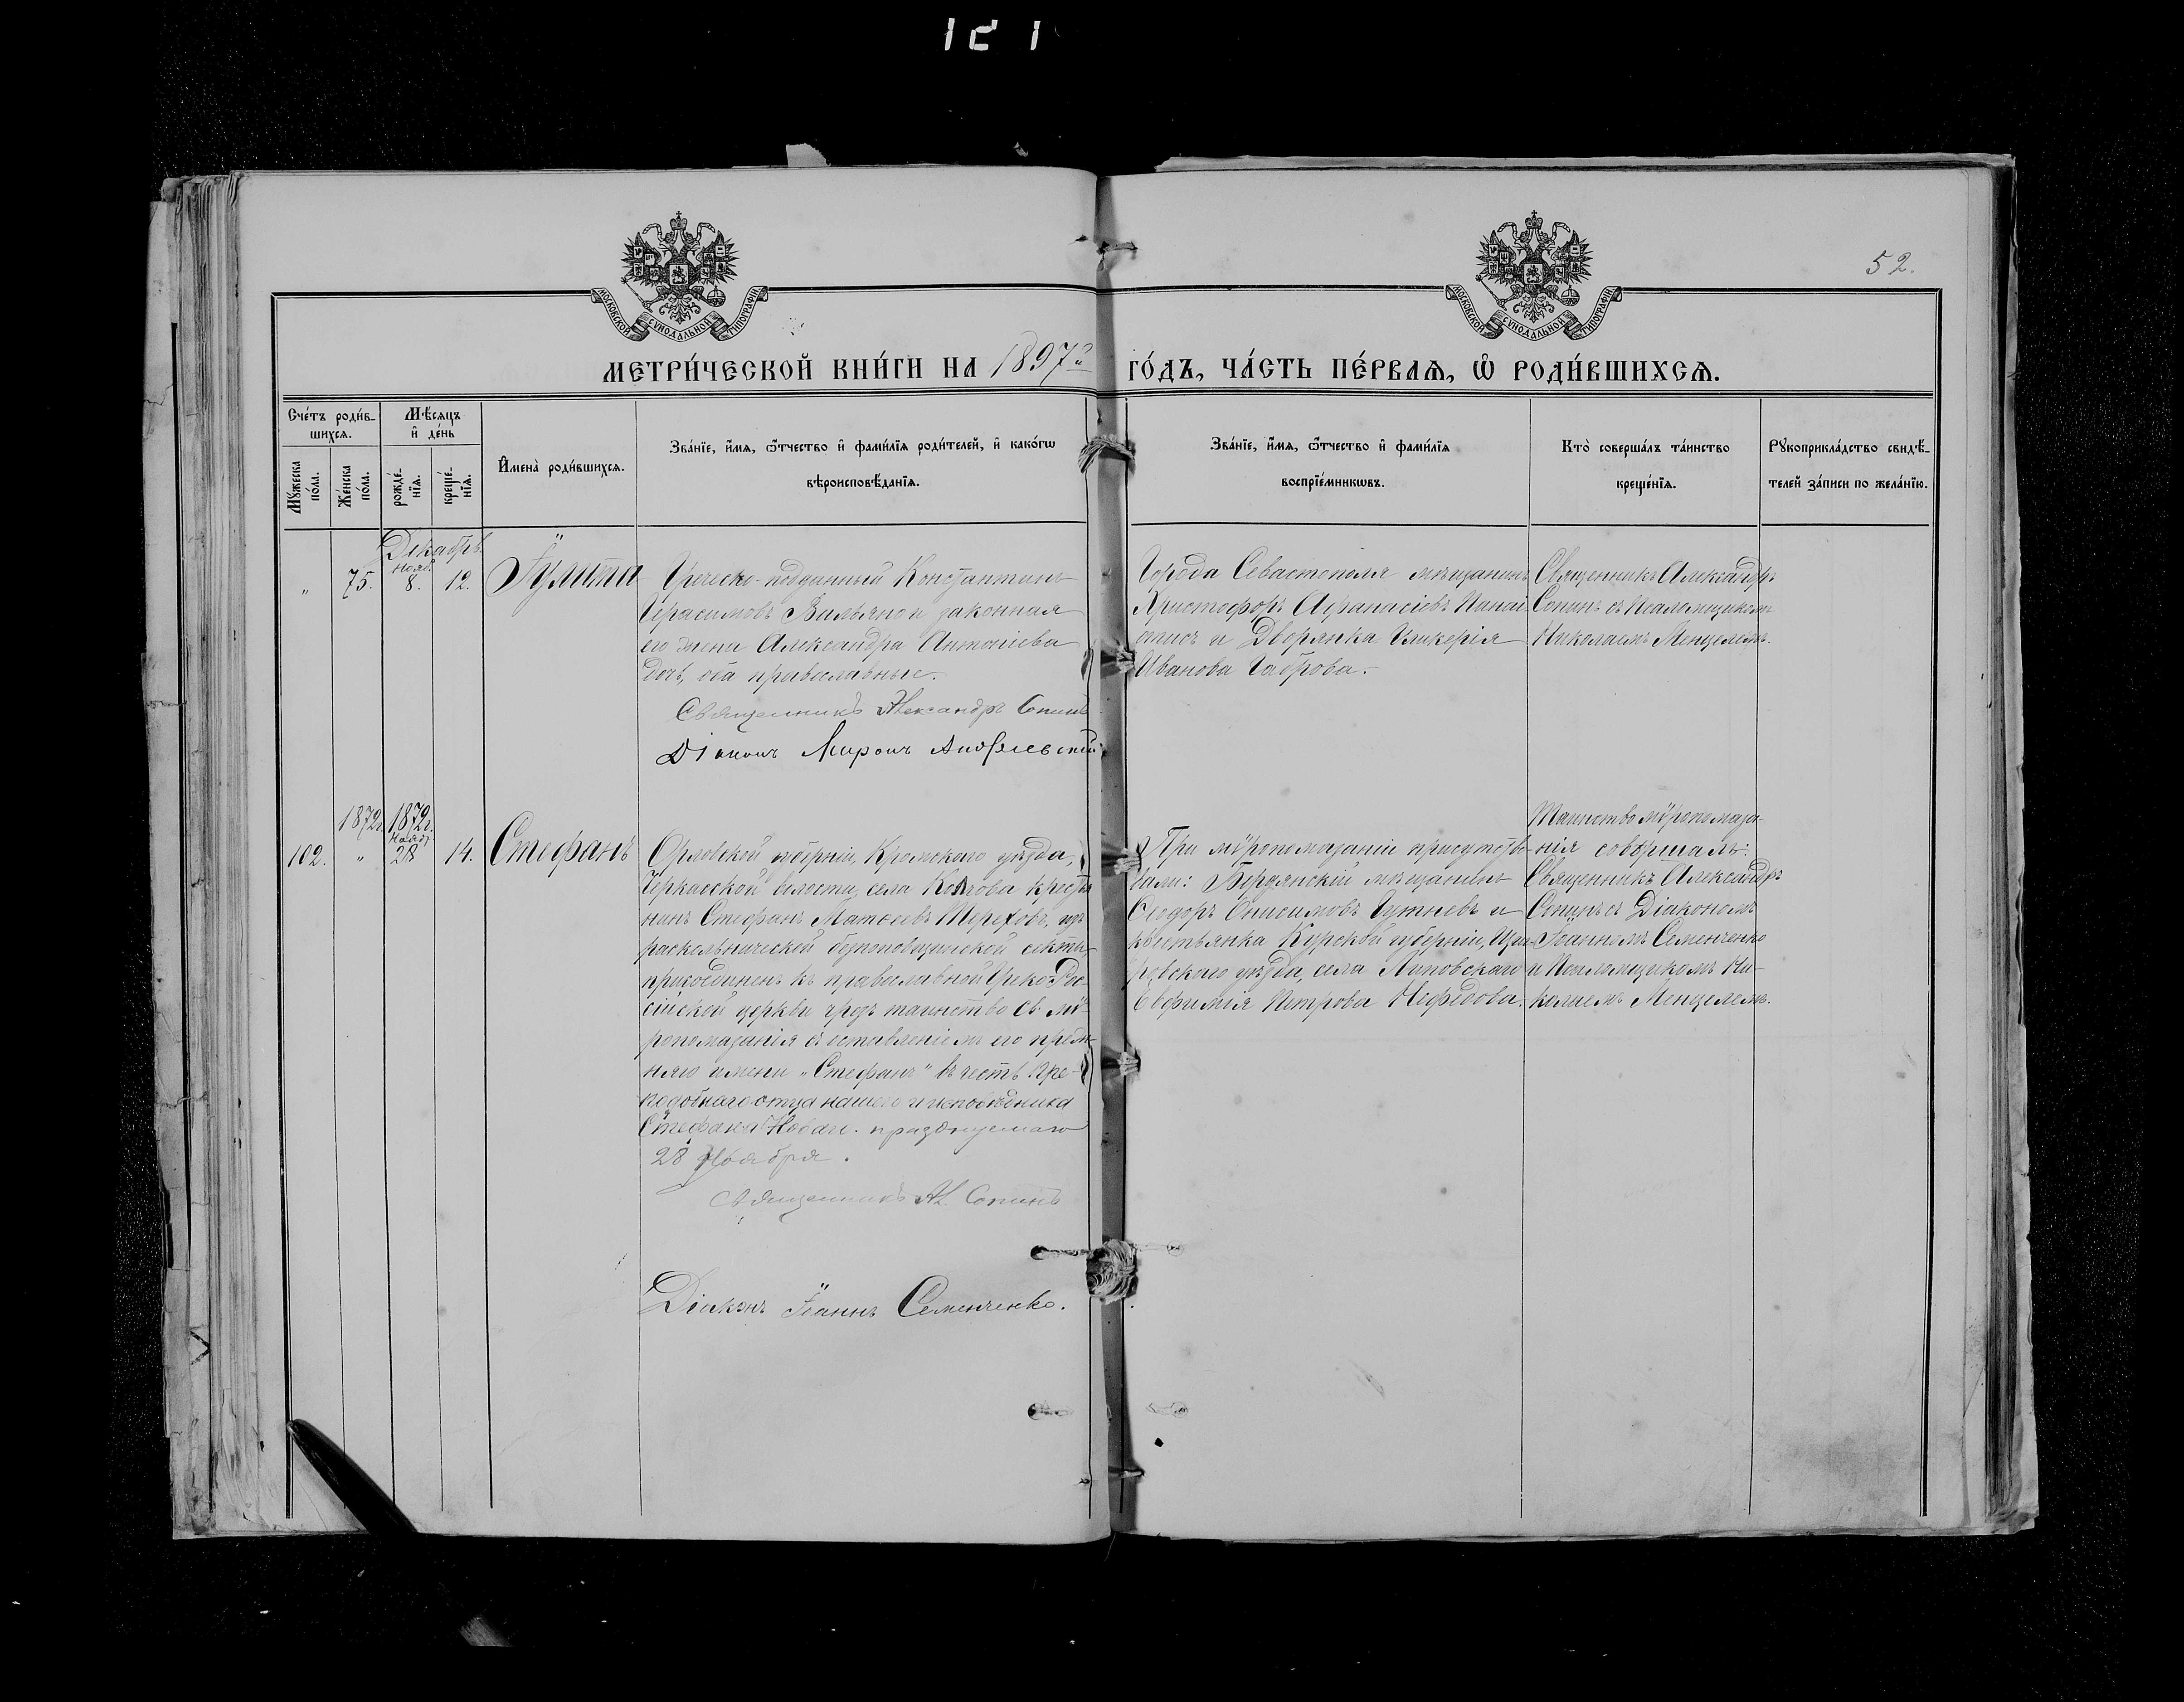 121
52.
МОСКОВСКОЙ СѴНОДАЛЬНОЙ ТИПОГРАФІИ
МОСКОВСКОЙ СѴНОДАЛЬНОЙ ТИПОГРАФІИ
МЕТРИ́ЧЕСКОЙ КНИ́ГИ НА 1897й ГО́ДЪ, ЧА́СТЬ ПЕ́РВАЯ, Ѡ РОДИ́ВШИХСЯ.
Сче́тъ роди́в-
шихся.
Мꙋ́жеска по́ла.
Же́нска по́ла.
Мѣ́сяцъ и де́нь
рожде́-нїя.
креще́-нїя.
И́мена роди́вшихся.
Зва́нїе, и́мя, ѻ́тчество и фами́лїя роди́телей, и како́гѡ
вѣроисповѣ́данїя.
Зва́нїе, и́мя, ѻ́тчество и фами́лїя
воспрїе́мникѡвъ.
Кто̀ соверша́лъ та́инство
креще́нїя.
Рꙋкоприкла́дство свидѣ́-
телей за́писи по жела́нїю.
Декабрь
нояб.
" 75. 8. 12. Іулитта
Греческо-подданный Константинъ
Герасимовъ Вальяно и законная
его жена Александра Антоніева
дочь, оба православные.
Священникъ Александръ Сопинъ
Діаконъ Миронъ
Города Севастополя мѣщанинъ
Христофоръ Афанасіевъ Панаі
отисъ и Дворянка Гликерія
Иванова Гаврова.
Священникъ Александръ
Сопинъ съ Псаломщикомъ
Николаемъ Менцелемъ.
1872г. 1872г.
Нояб.
102. " 28 14. Стефанъ
Орловской губерніи, Кромскаго уѣзда,
Черкасской волости, села крестья
нинъ Стефанъ Матѳеевъ Тереховъ, изъ
раскольнической безпоповщинской секты
присоединенъ къ православной Греко-Рос-
сійской церкви чрезъ таинство Св. мѵ-
ропомазанія съ оставленіемъ его преж-
няго имени „Стефанъ" въ честь Пре-
подобнаго отца нашего и исповѣдника
Стефана Новаго. празднуемаго
28 Ноября.
Священникъ Ал. Сопинъ
Діаконъ Іоаннъ Семенченко.
При мѵропомазаніи присутство-
вали: Бердянскій мѣщанинъ
Ѳеодоръ Онисимовъ Гутневъ и
крестьянка Курской губерніи, Щи-
гровскаго уѣзда, села Липовскаго
Евфимія Петрова Нефедова.
Таинство мѵропомаза-
нія совершалъ:
Священникъ Александръ
Сопинъ съ Діакономъ
Іоанномъ Семенченко
и Псаломщикомъ Ни-
колаемъ Менцелемъ.